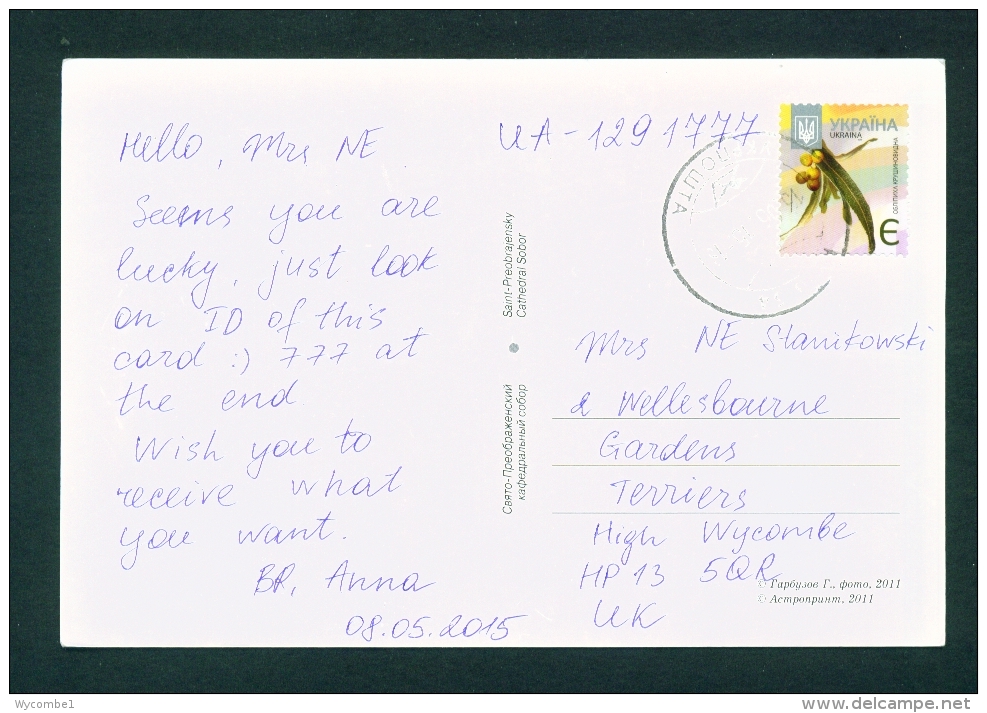 Hello, Mrs NE
Seems you are
lucky, just look
on ID of this
card :) 777 at
the end.
Wish you to
receive what
you want.
BR, Anna
08.05.2015
Saint-Preobrajensky
Cathedral Sobor
Свято-Преображенский
кафедральный собор
UA-1291777
УКРАЇНА
UKRAINA
ОБЛІПИХА КРУШИНОВИДНА
Є
ПОШТА
Mrs NE Stanikowski
Wellesbourne
Gardens
Terriers
High Wycombe
HP13 5QR
UK
© Гарбузов Г., фото, 2011
© Астропринт, 2011
Wycombe1
delcampe.net